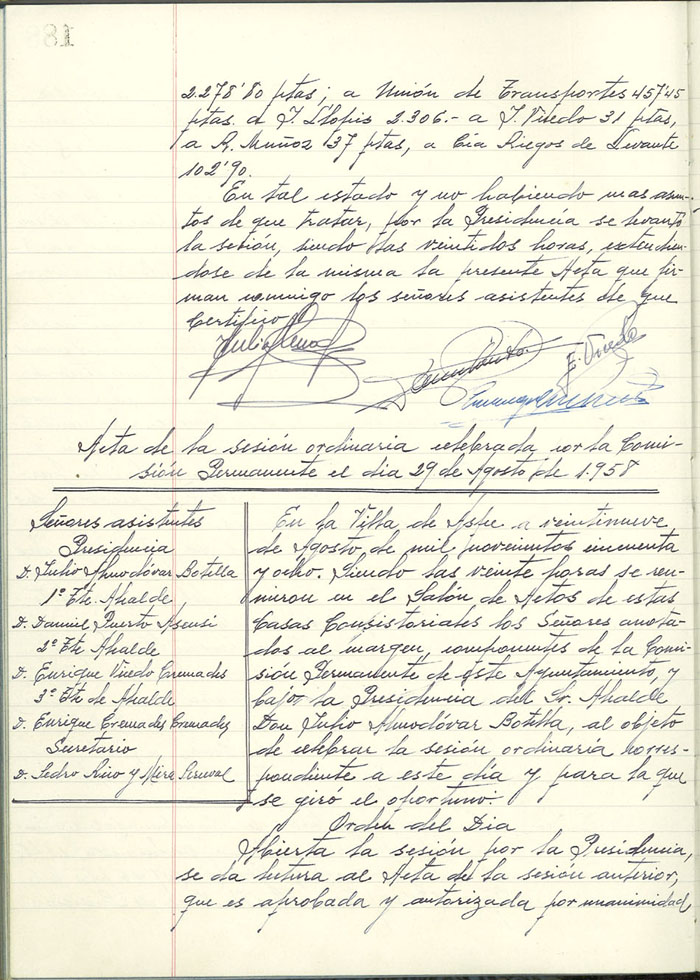 2.278'80 ptas; a Unión de Transportes 457'45
ptas. a J. Llopis 2.306.- a J. Viñedo 31 ptas,
a R. Muñoz 37 ptas, a Cía Riegos de Levante
102'90.
En tal estado y no habiendo mas asun-
tos de que tratar, por la Presidencia se levantó
la sesión, siendo las veintidos horas, extendien-
dose de la misma la presente Acta que fir-
man conmigo los señores asistentes de que
Certifico
E. Viñedo
Acta de la sesión ordinaria celebrada por la Comi-
sión Permanente el dia 29 de Agosto de 1.958
Señores asistentes
Presidencia
D. Julio Almodóvar Botella
1º Tte. Alcalde
D. Daniel Puerto Asensi
2º Tte Alcalde
D. Enrique Viñedo Cremades
3º Tte de Alcalde
D. Enrique Cremades Cremades
Secretario
D. Pedro Rico y Mira Perceval
En la Villa de Aspe a veintinueve
de Agosto de mil novecientos cincuenta
y ocho. Siendo las veinte horas se reu-
nieron en el Salón de Actos de estas
Casas Consistoriales los Señores anota-
dos al margen, componentes de la Comi-
sión Permanente de este Ayuntamiento, y
bajo la Presidencia del Sr. Alcalde
Don Julio Almodóvar Botella, al objeto
de celebrar la sesión ordinaria corres-
pondiente a este día y para la que
se giró el oportuno.
Orden del Dia
Abierta la sesión por la Presidencia,
se da lectura al Acta de la sesión anterior,
que es aprobada y autorizada por unanimidad